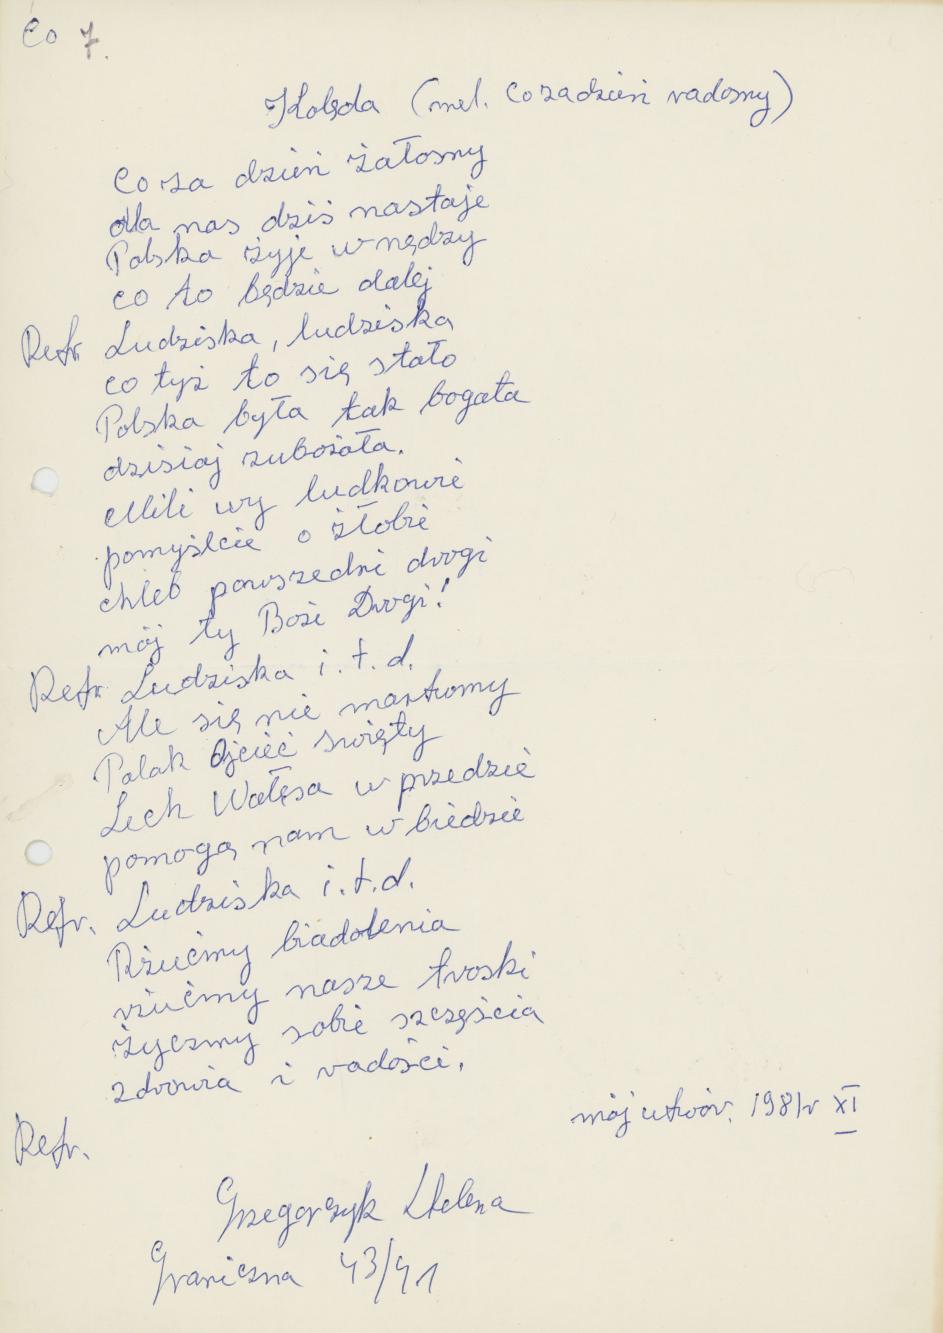 Co 7.
Kolęda (mel. Co za dzień radosny)
Co za dzień żałosny
dla nas dziś nastaje
Polska żyje w nędzy
co to będzie dalej
Refr Ludziska, ludziska
co tyż to się stało
Polska była tak bogata
dzisiaj zubożała.
Mili wy ludkowie
pomyślcie o żłobie
chleb powszedni drogi
mój ty Boże Drogi!
Refr Ludziska i.t.d.
Ale się nie martwmy
Polak Ojcieć święty
Lech Wałęsa w przedzie
pomogą nam w biedzie
Refr. Ludziska i.t.d.
Rżućmy biadolenia
rżućmy nasze troski
życzmy sobie szczęścia
zdrowia i radości.
mój utwór. 1981r XI
Refr.
Grzegorzyk Helena
Graniczna 43/41